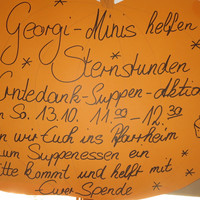 Georgi-Minis helfen
Sternstunden
Erntedank-Suppen-Aktion
So. 13.10. 11⁰⁰ - 12.³⁰
wir Euch ins Pfarrheim
zum Suppenessen ein
Bitte kommt und helft mit
Eurer Spende